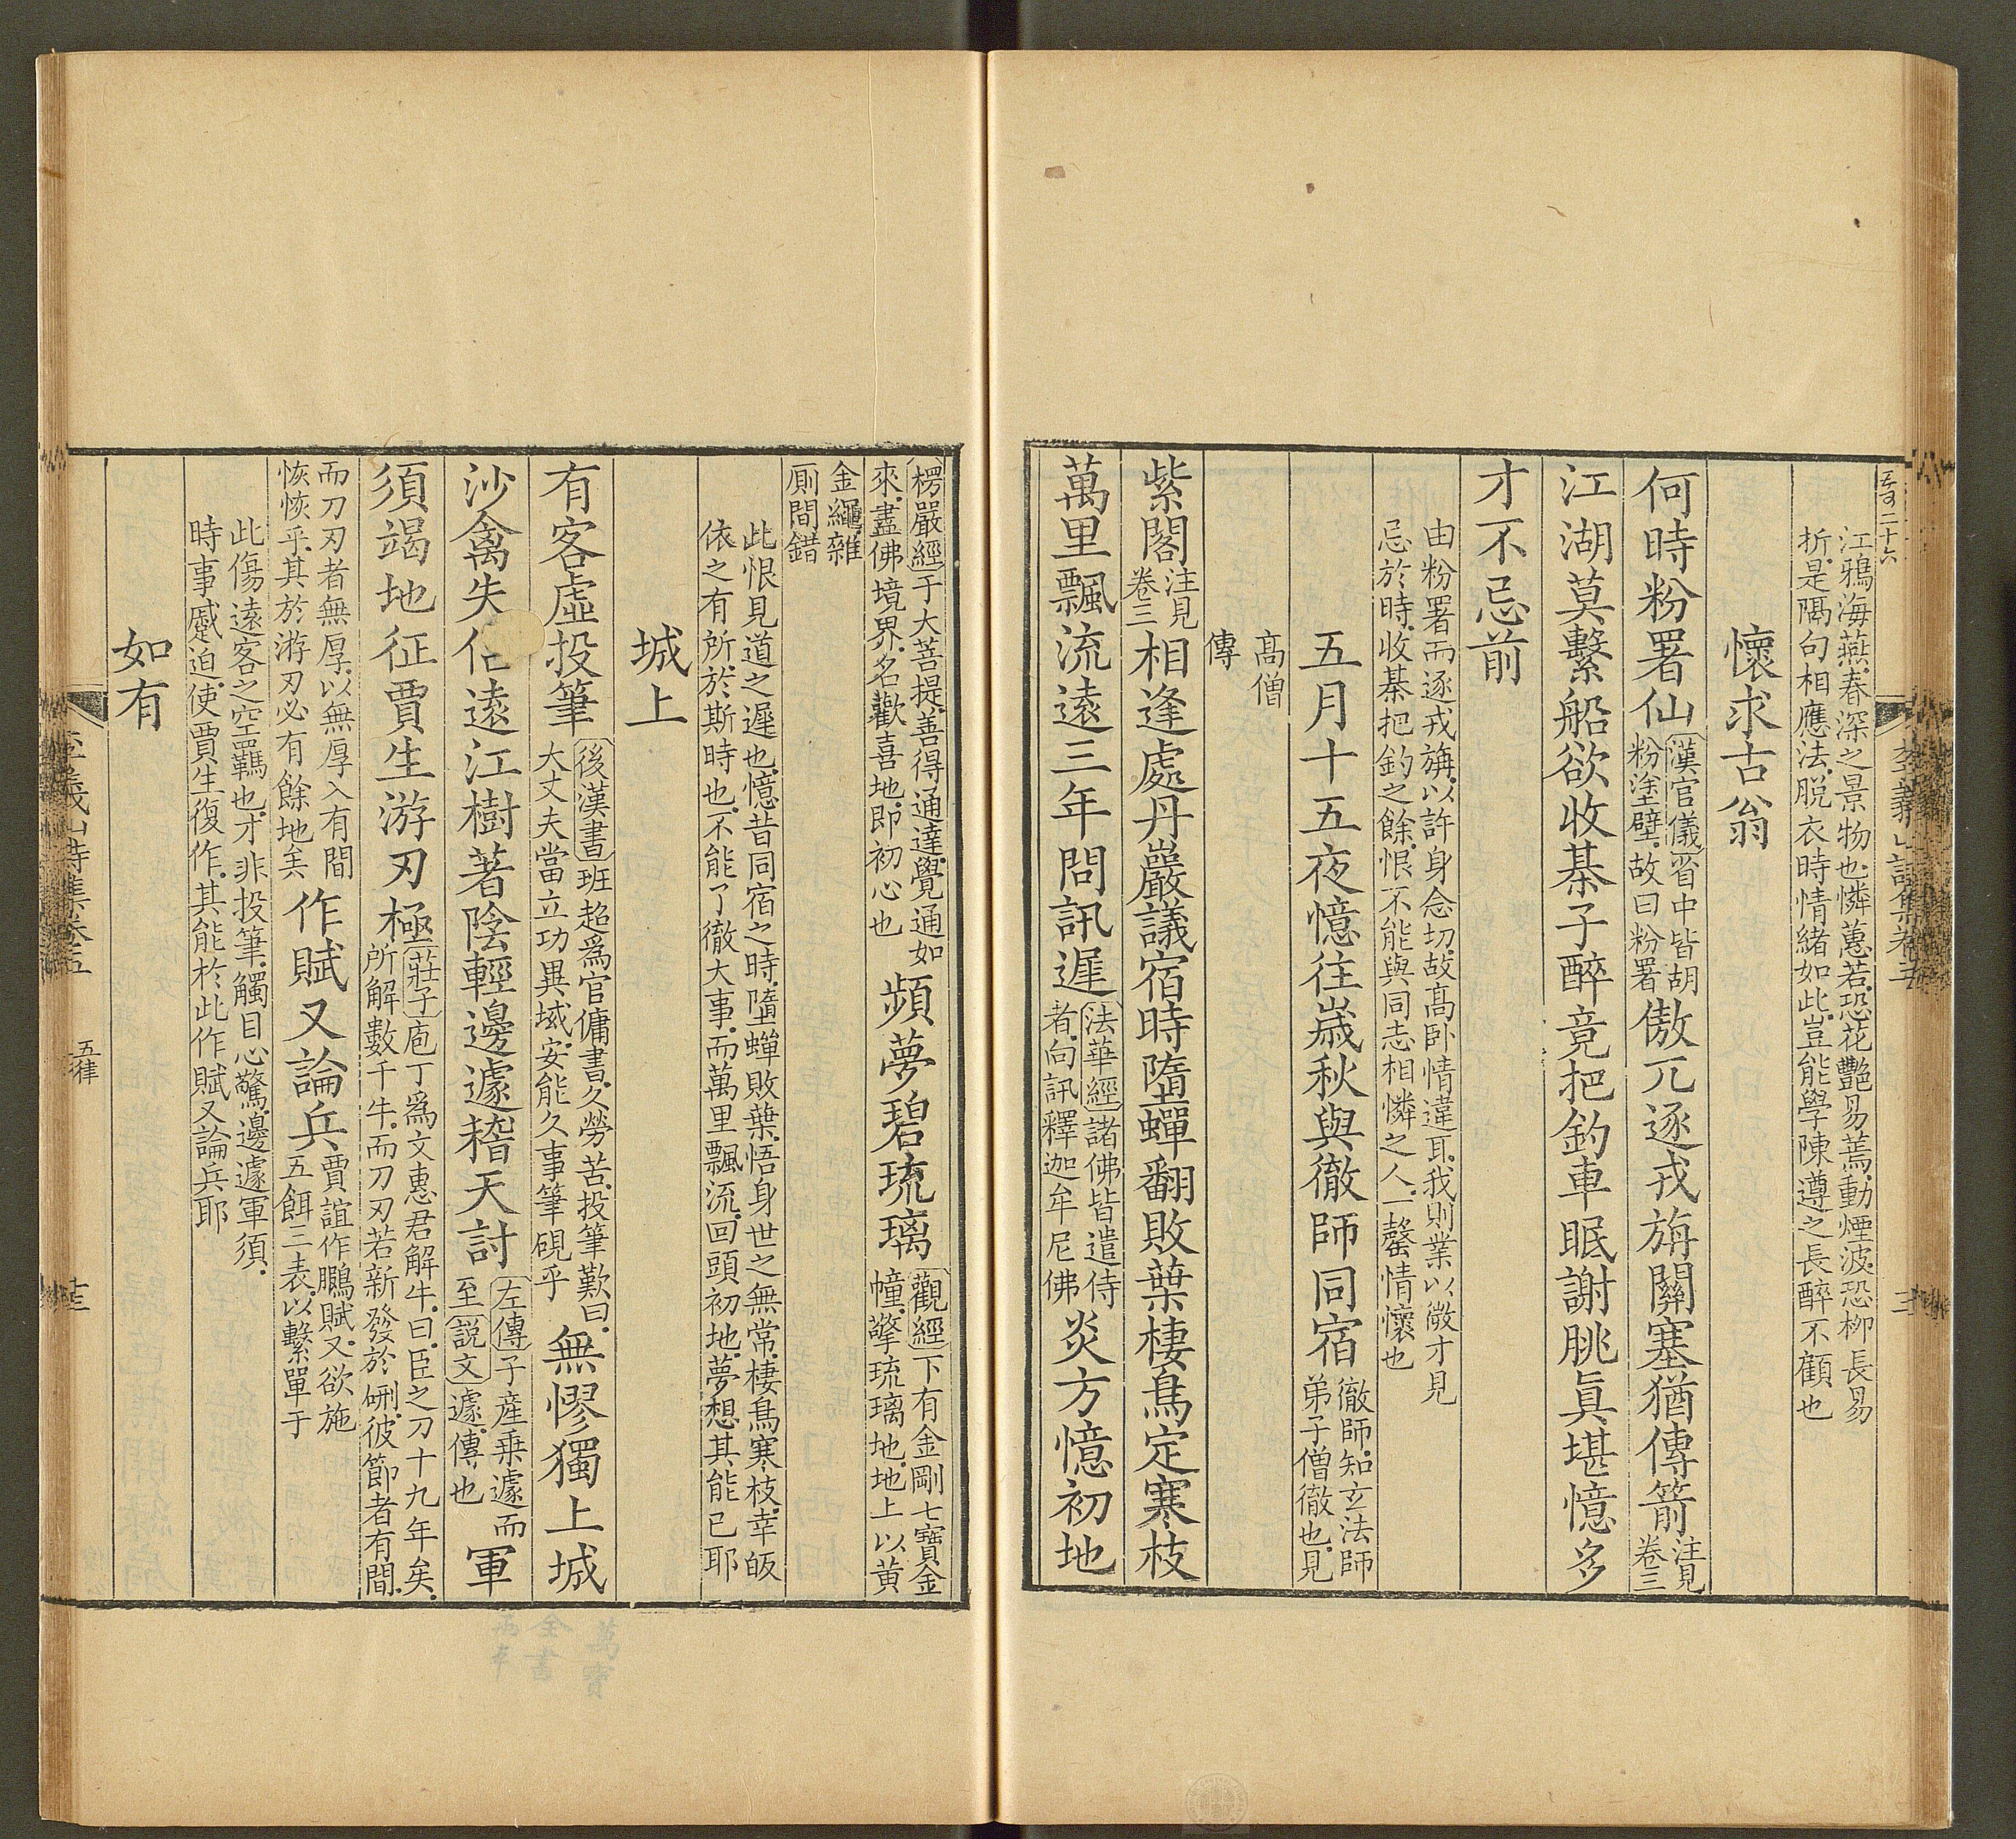 江鴉海燕春深之景物也憐蕙若恐花艷易蔫動煙波恐柳長易
折是隔句相應法脫衣時情緒如此豈能學陳遵之長醉不顧也
懷求古翁
何時粉署仙
漢官儀省中皆胡
粉塗壁故曰粉署
傲兀逐戎旃關塞猶傳箭
注見
卷三
江湖莫繫船欲收棊子醉竟把釣車眠謝朓眞堪憶多
才不忌前
由粉署而逐戎旃以許身念切故高卧情違耳我則業以微才見
忌於時收棊把釣之餘恨不能與同志相憐之人一罄情懷也
五月十五夜憶往歲秋與徹師同宿
徹師知玄法師
弟子僧徹也見
高僧
傳
紫閣
注見
卷三
相逢處丹巖議宿時墮蟬翻敗葉棲鳥定寒枝
萬里飄流遠三年問訊遲
法華經諸佛皆遣侍
者向訊釋迦牟尼佛
炎方憶初地
楞嚴經于大菩提善得通達覺通如
來盡佛境界名歡喜地即初心也
頻夢碧琉璃
觀經下有金剛七寶金
幢擎琉璃地地上以黃
金繩雜
厠間錯
此恨見道之遲也憶昔同宿之時墮蟬敗葉悟身世之無常棲鳥寒枝幸皈
依之有所於斯時也不能了徹大事而萬里飄流回頭初地夢想其能已耶
城上
有客虛投筆
後漢書班超爲官傭書久勞苦投筆歎曰
大丈夫當立功異域安能久事筆硯乎
無憀獨上城
沙禽失侶遠江樹著陰輕邊遽稽天討
左傳子產乘遽而
至說文遽傳也
軍
須竭地征賈生游刃極
莊子庖丁爲文惠君解牛曰臣之刀十九年矣
所解數千牛而刀刃若新發於硎彼節者有間
而刀刃者無厚以無厚入有間
恢恢乎其於游刃必有餘地矣
作賦又論兵
賈誼作鵩賦又欲施
五餌三表以繫單于
此傷遠客之空羈也才非投筆觸目心驚邊遽軍須
時事蹙迫使賈生復作其能於此作賦又論兵耶
如有
李義山詩集卷五
五律